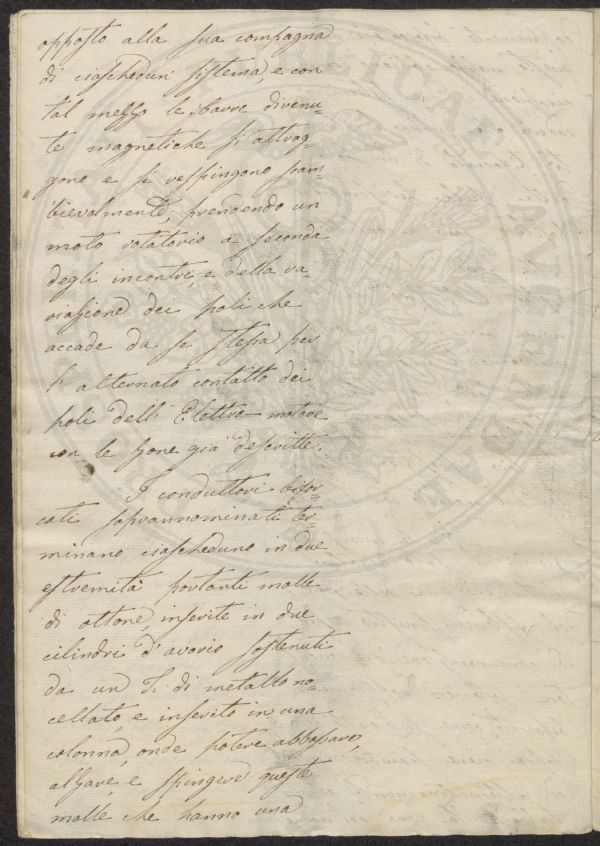 opposto alla sua compagna
di ciaschedun' sistema, e con
tal mezzo le barre divenu-
te magnetiche si attrag-
gono e si respingono scam-
bievolmente; prendendo un
moto rotatorio a seconda
degli incontri, e della va-
riazione dei poli che
accade da se stessa per
l'alternato contatto dei
poli dell' Elettro-motore
con le zone già descritte.
I conduttori bifor-
cati soprannominati ter-
minano ciascheduno in due
estremità portanti molle
di ottone, inserite in due
cilindri d'avorio sostenuti
da un T. di metallo
e inserito in una
colonna, onde potere abbassare,
alzare, e spingere queste
molle che hanno una